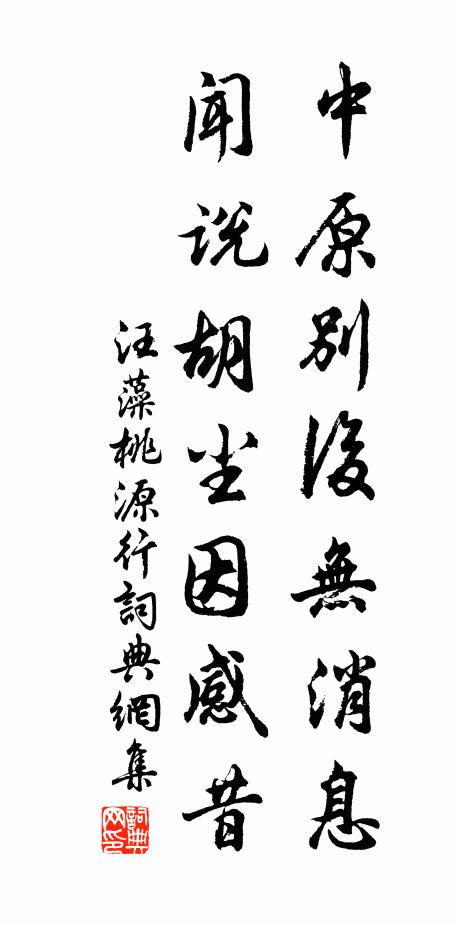 中原別後無消息
闻说胡尘因感昔
汪藻桃源行詞典網集
詞典网印